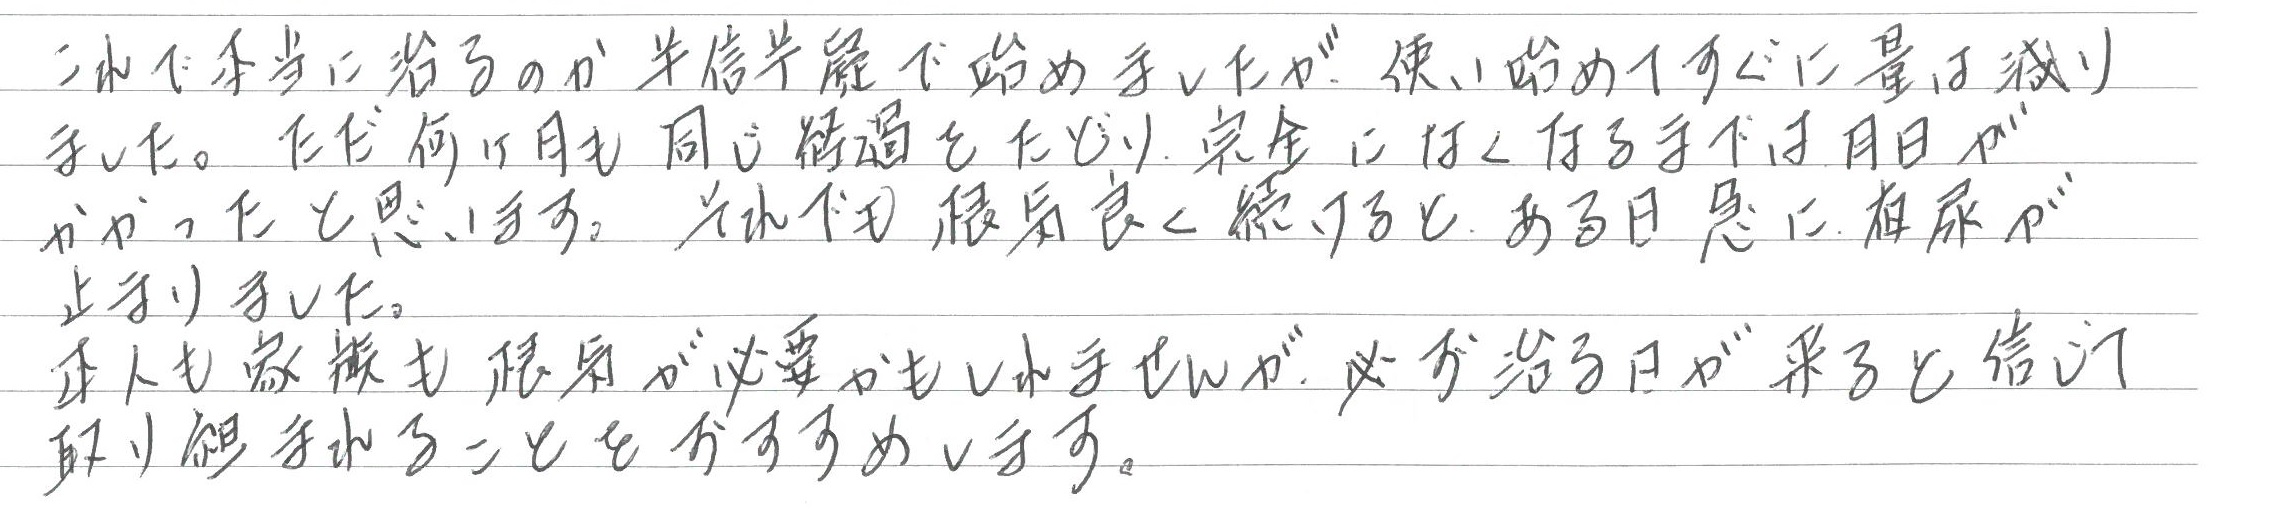 これで本当に治るのか半信半疑で始めましたが、使い始めてすぐに量は減り
ました。ただ何ヶ月も同じ経過をたどり、完全になくなるまでは、月日が
かかったと思います。それでも根気良く続けると、ある日急に、夜尿が
止まりました。
本人も家族も根気が必要かもしれませんが、必ず治る日が来ると信じて
取り組まれることをおすすめします。